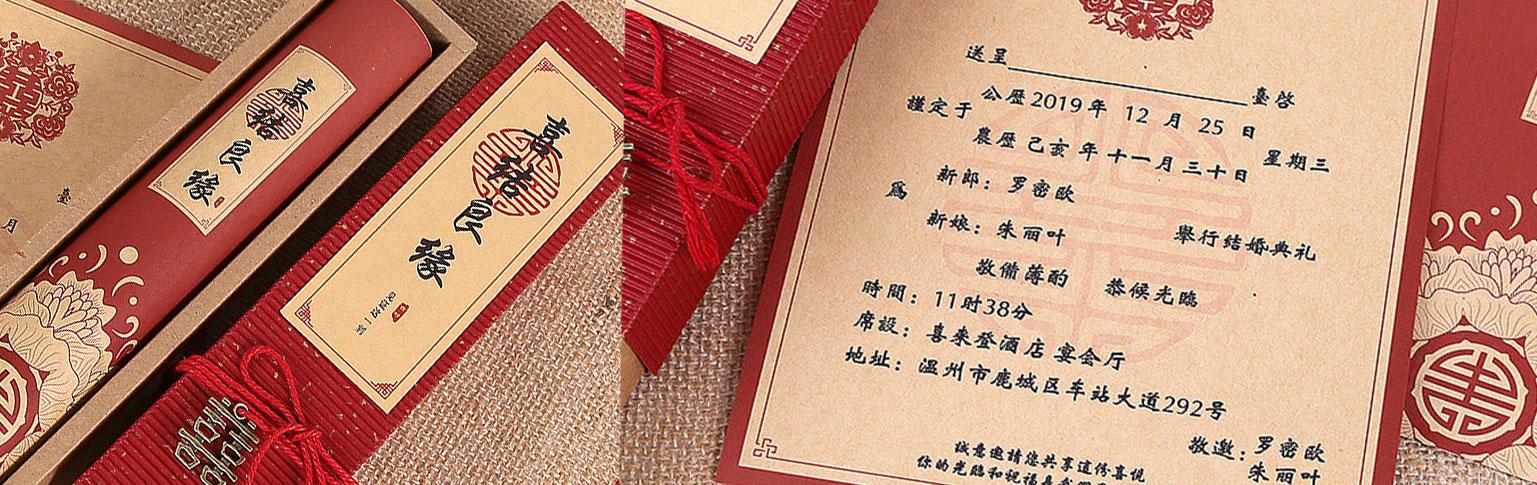 喜结良缘
喜结良缘
臺
月
送呈 臺啓
公歷2019年 12 月 25 日
謹定于 星期三
農歷 己亥 年 十一月 三十日
新郎: 罗密欧
爲
新娘: 朱丽叶 舉行结婚典礼
敬備薄酌 恭候光臨
時間: 11时38分
席設: 喜来登酒店 宴会厅
地址: 温州市鹿城区车站大道292号
敬邀: 罗密欧
朱丽叶
誠意邀請您共享這份喜悦
你的光臨和祝福是